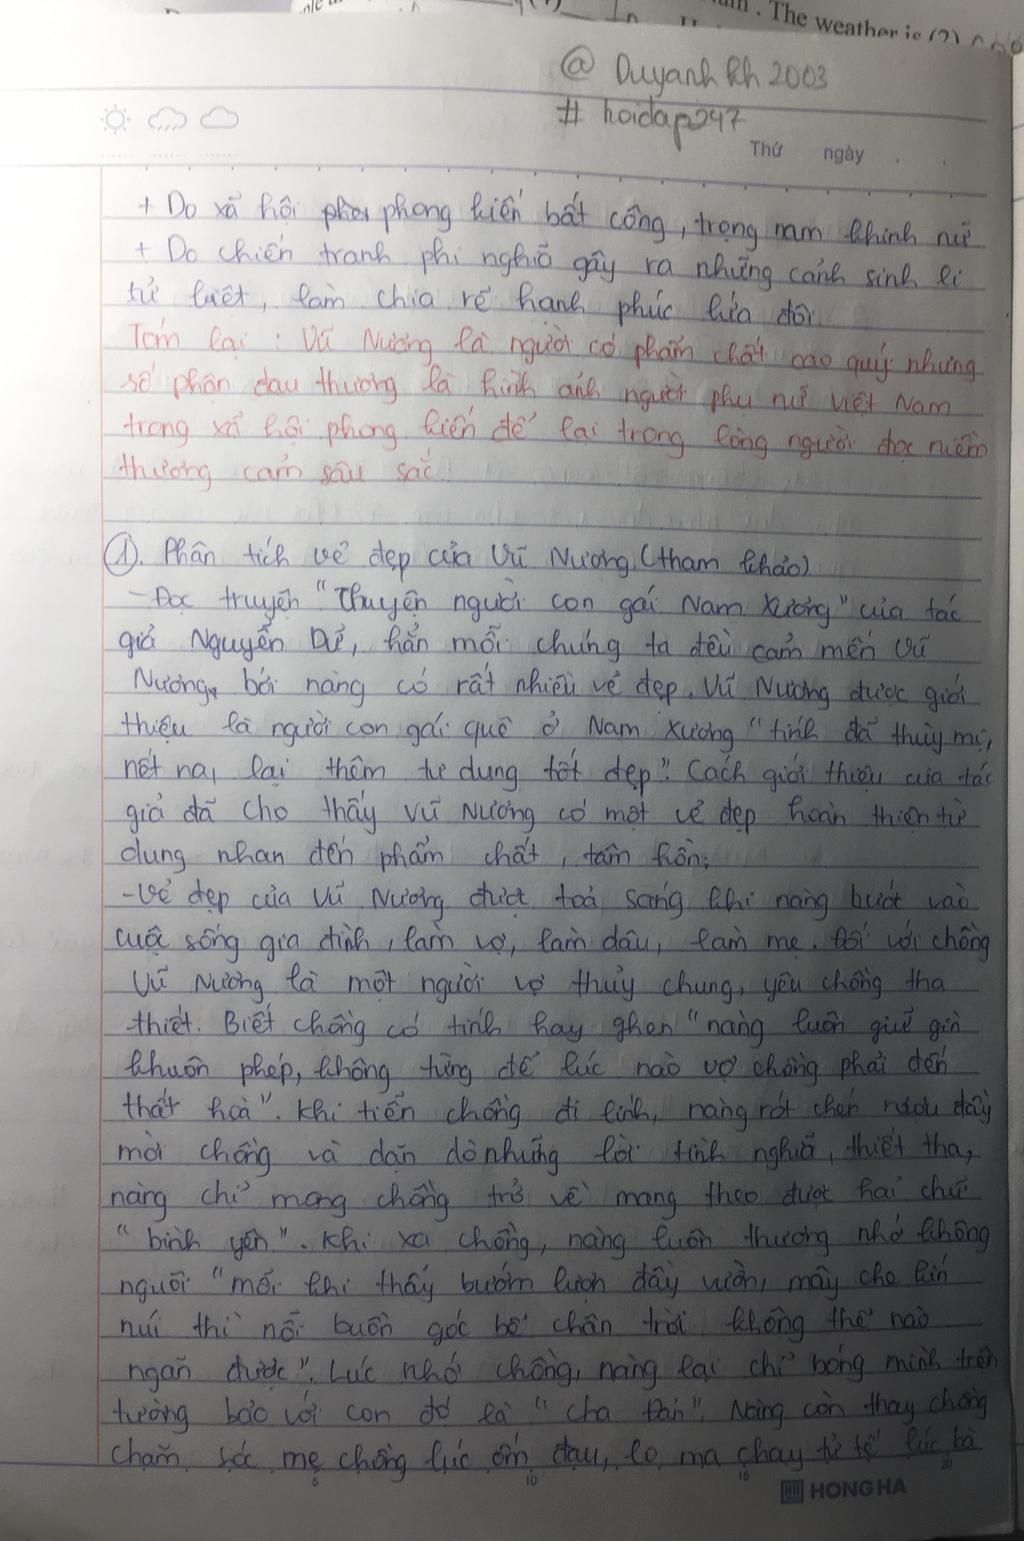 . The weather is (2)
@ Duyanh kh 2003
# hoidap247
Thứ ngày
+ Do xã hội phong kiến bất công, trọng nam khinh nữ
+ Do chiến tranh phi nghĩa gây ra những cảnh sinh li
tử biệt, làm chia rẽ hạnh phúc lứa đôi
Tóm lại : Vũ Nương là người có phẩm chất cao quý nhưng
số phận đau thương là hình ảnh người phụ nữ Việt Nam
trong xã hội phong kiến để lại trong lòng người đọc niềm
thương cảm sâu sắc
①. Phân tích vẻ đẹp của Vũ Nương (tham khảo)
- Đọc truyện "Chuyện người con gái Nam Xương" của tác
giả Nguyễn Dữ, hẳn mỗi chúng ta đều cảm mến Vũ
Nương, bởi nàng có rất nhiều vẻ đẹp. Vũ Nương được giới
thiệu là người con gái quê ở Nam Xương "tính đã thùy mị,
nết na, lại thêm tư dung tốt đẹp". Cách giới thiệu của tác
giả đã cho thấy Vũ Nương có một vẻ đẹp hoàn thiện từ
dung nhan đến phẩm chất, tâm hồn.
- Vẻ đẹp của Vũ Nương được toả sáng khi nàng bước vào
cuộc sống gia đình, làm vợ, làm dâu, làm mẹ. Đối với chồng
Vũ Nương là một người vợ thuỷ chung, yêu chồng tha
thiết. Biết chồng có tính hay ghen "nàng luôn giữ gìn
khuôn phép, không từng để lúc nào vợ chồng phải đến
thất hoà". Khi tiễn chồng đi lính, nàng rót chén rượu đầy
mời chồng và dặn dò những lời tình nghĩa, thiết tha,
nàng chỉ mong chồng trở về mang theo được hai chữ
"bình yên". Khi xa chồng, nàng luôn thương nhớ không
nguôi "mỗi khi thấy bướm lượn đầy vườn, mây che kín
núi thì nỗi buồn góc bể chân trời không thể nào
ngăn được". Lúc nhớ chồng, nàng lại chỉ bóng mình trên
tường bảo với con đó là "cha Đản". Nàng còn thay chồng
chăm sóc mẹ chồng lúc ốm đau, lo ma chay tử tế lúc bà
5 10 15 20
HONG HA